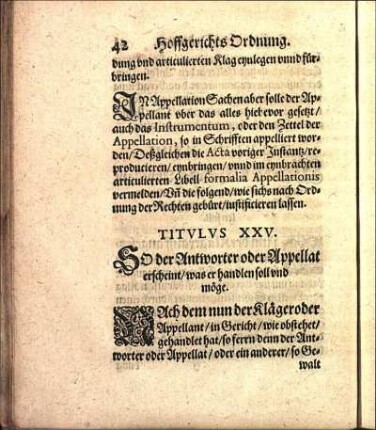 42 Hoffgerichts Ordnung.
dung vnd articulierten Klag eynlegen vnnd für-
bringen.
IN Appellation Sachen aber solle der Ap-
pellant vber das alles hieb evor gesetzt/
auch das Instrumentum, oder den Zettel der
Appellation, so in Schrifften appelliert wor-
den/ Deßgleichen die Acta voriger Instantz/ re-
producieren/ eynbringen/ vnnd im eynbrachten
articulierten Libell formalia Appellationis
vermelden/ Vñ die folgend/ wie sichs nach Ord-
nung der Rechten gebürt/ iustificieren lassen.
TITVLVS XXV.
SO der Antworter oder Appellat
erscheint/ was er handlen soll vnd
möge.
NAch dem nun der Kläger oder
Appellant/ in Gericht/ wie obstehet/
gehandlet hat/ so fern denn der Ant-
worter oder Appellat/ oder ein anderer/ so Ge-
walt